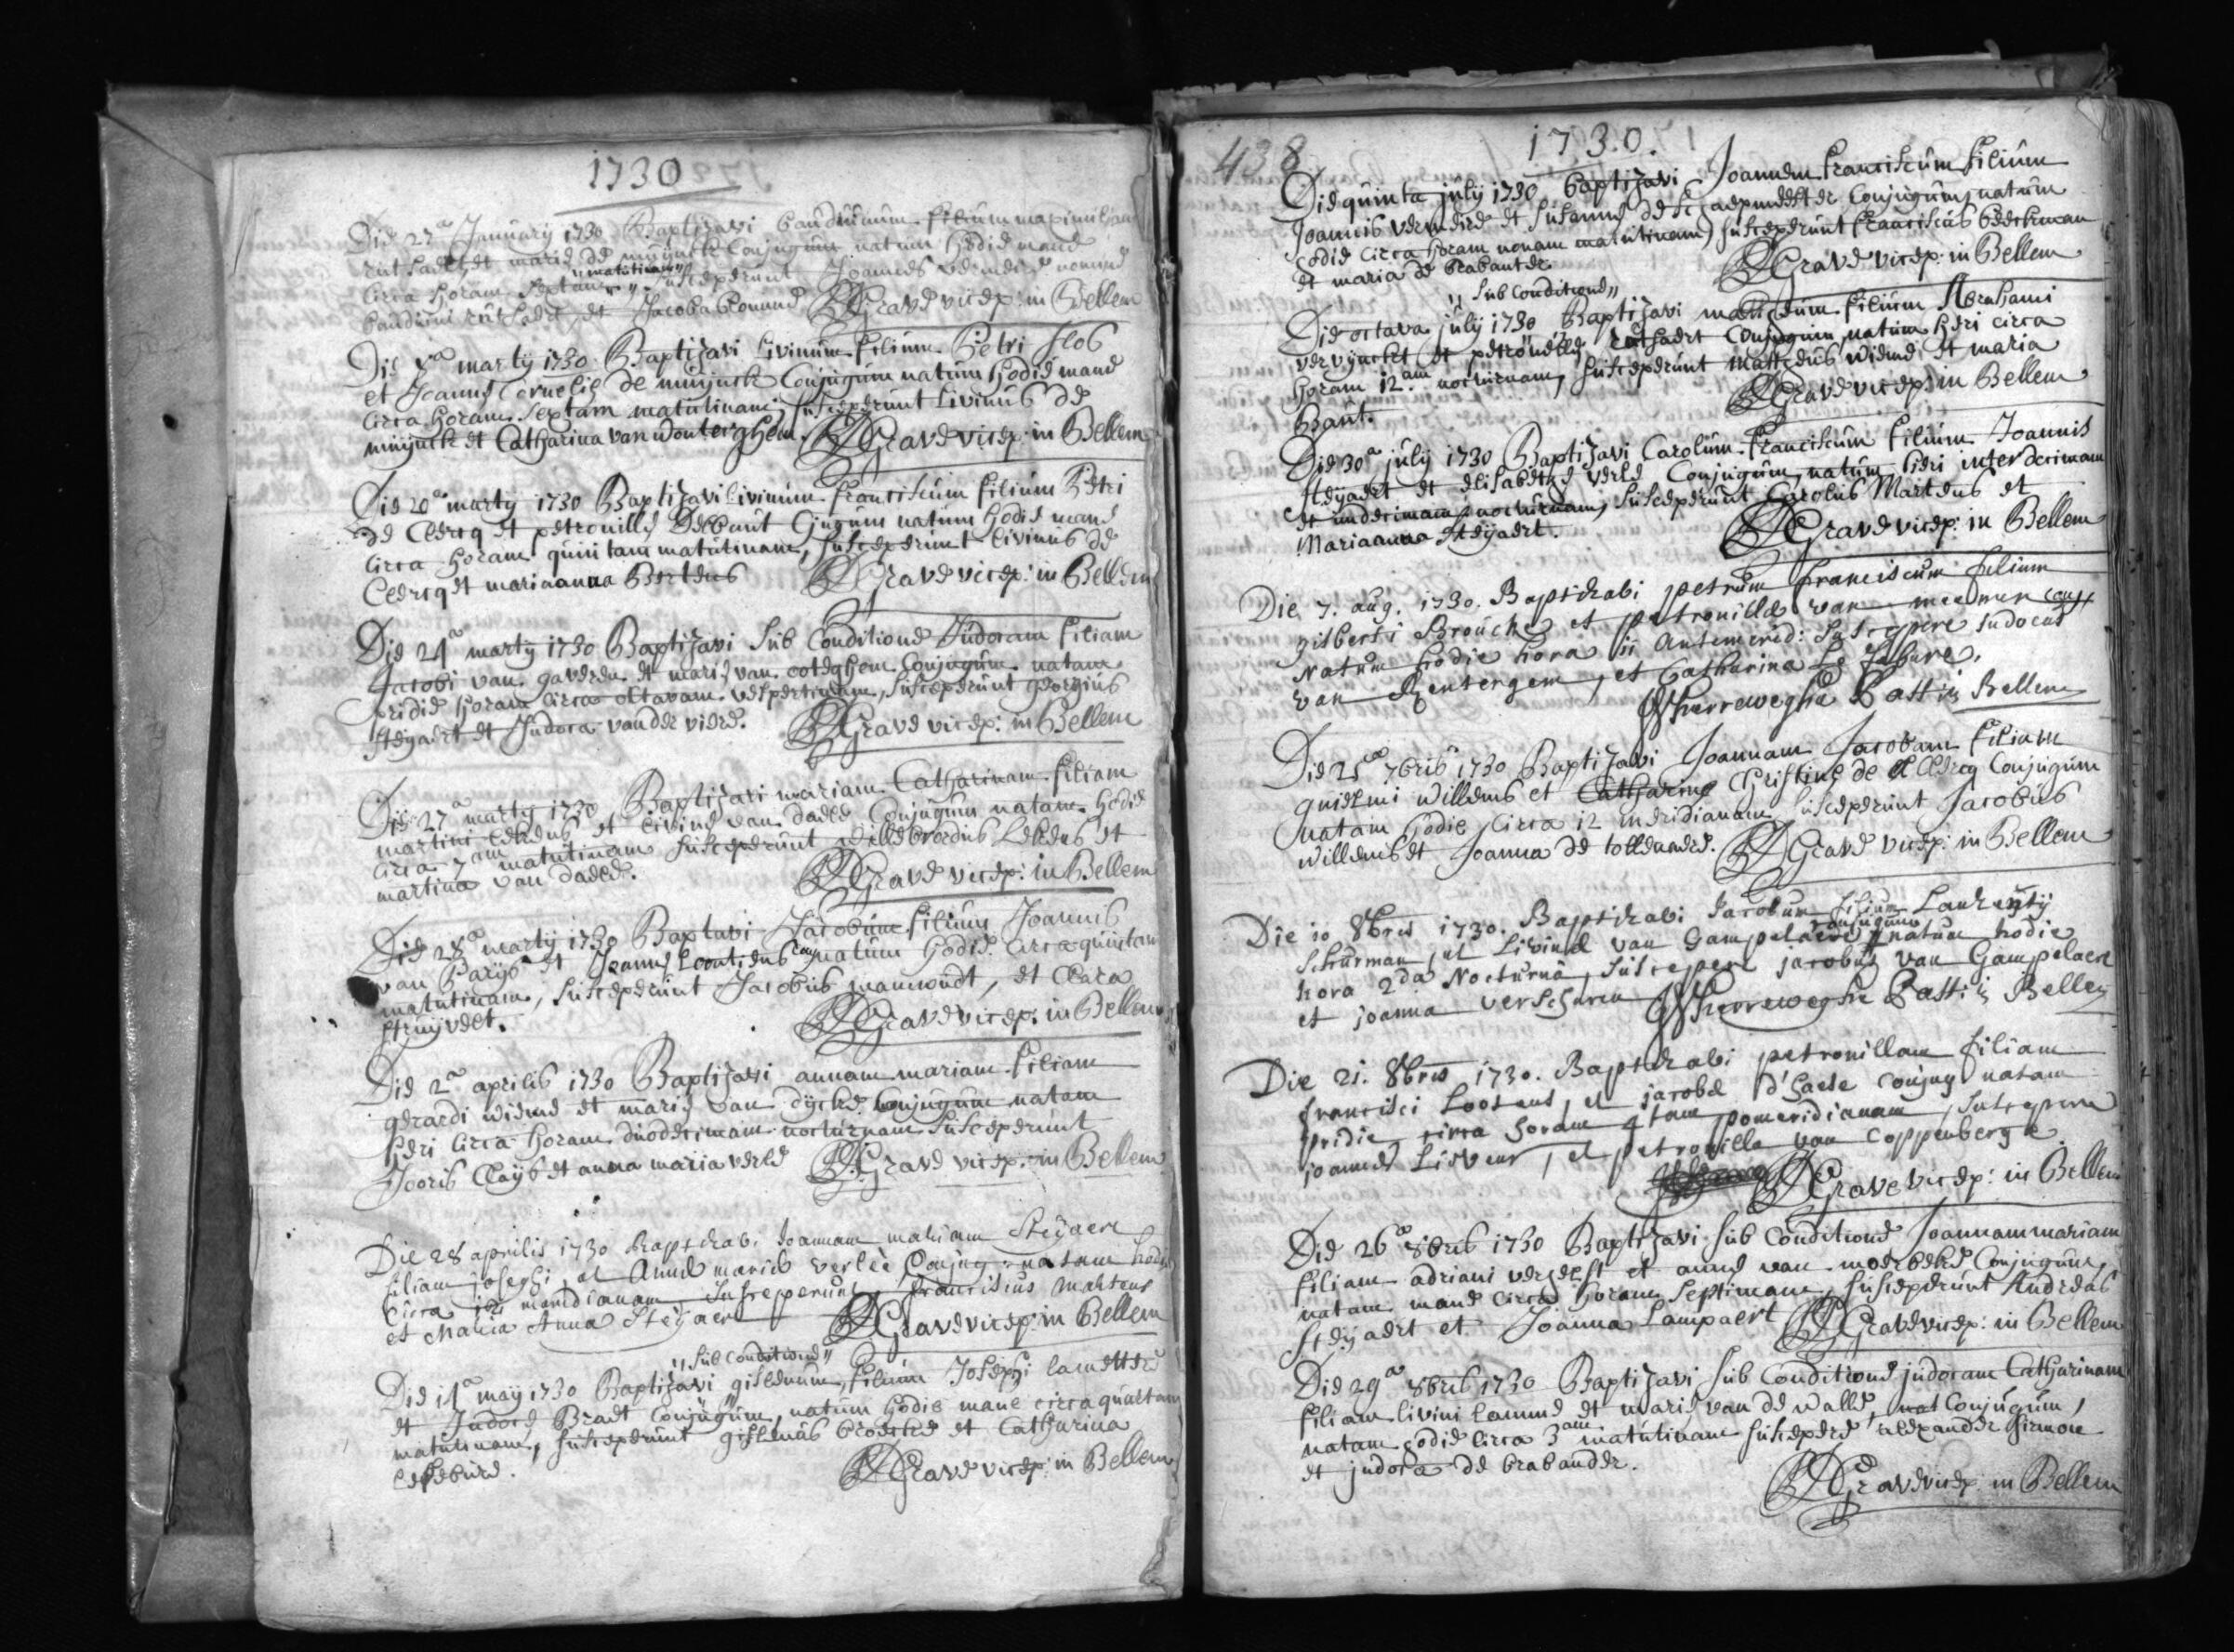 1730
Die 27a January 1730 Baptisavi Bauduinum filium maximiliani
rutsaert et marie de muijnck Conjugum natum hodie mane
"matutinam"
Circa horam septimam, susceperunt Joannes vermeire nomine
bauduini rutsaert, et Jacoba Comune DGrave vicep: in Bellem
Die va marty 1730 Baptisavi Livinum filium Petri Slos
et Joanne Cornelie de muijnck Conjugum natum hodie mane
Circa horam Sextam matutinam; susceperunt Livinus de
muijnck et Catharina van wonterghem. DGrave vicep: in Bellem
Die 20a marty 1730 Baptisavi Livinum franciscum filium Petri
de Clercq et petronille Debbaut Cjugum natum hodie mane
Circa horam quintam matutinam, susceperunt Livinus de
Clercq et mariaanna Bertens DGrave vicep: in Bellem
Die 24a marty 1730 Baptisavi Sub Conditione Judocam filiam
Jacobi van gaveren et marie van ooteghem Conjugum natam
pridie horam Circa octavam vespertinam, Susceperunt georgius
steyaert et Judoca vander viere. DGrave vicep: in Bellem
Die 27a marty 1730 Baptisavi mariam Catharinam filiam
martini Lekens et Livine van daele Conjugum natam hodie
circa 7am matutinam susceperunt willebrordus Lekens et
martina van daele. DGrave vicep: in Bellem
Die 28a marty 1730 Baptisavi Jacobum filium Joannis
van Parijs et Joanne Loontiens Conj natum hodie Circa quintam
matutinam, susceperunt Jacobus manwudt, et Clara
struijvelt. DGrave vicep: in Bellem
Die 2a aprilis 1730 Baptisavi annam mariam filiam
gerardi wieme et marie van dijcke Conjugum natam
heri Circa horam duodecimam nocturnam Susceperunt
Jooris Claijs et anna maria verle DGrave vicep: in Bellem
Die 28 aprilis 1730 Baptizavi Joannam mariam Steyaert
filiam josephi, et Annae mariae verleè Conjug: natam hodie
Circa 12 meridianam Susceperunt franciscus Martens
et Maria Anna Steyaert DGrave vicep: in Bellem
"Sub Conditione"
Die 14a may 1730 Baptisavi gislenum, filium Josephi lamettre
et Judoce Braet Conjugum, natum hodie mane circa quartam
matutinam, susceperunt gislenus broecke et Catharina
Lefebure. DGrave vicep: in Bellem
438 1730.
Die quinta july 1730 Baptisavi Joannem Franciscum filium
Joannis vermeire et Susanne de Schaepmeester Conjugum, natum
hodie circa horam nonam matutinam) susceperunt Franciscus Beeckman
et maria de brabander DGrave vicep: in Bellem
"Sub Conditione"
Die octava july 1730 Baptisavi mattheum filium Abrahami
vervynckt et petronelle rutsaert Conjugum, natum heri circa
horam 12am nocturnam, susceperunt mattheus wieme et maria
Baut. DGrave vicep: in Bellem
Die 30a july 1730 Baptisavi Carolum Franciscum filium Joannis
steyaert et elisabethe verle Conjugum, natum heri inter decimam
et undecimam nocturnam, susceperunt Carolus Martens et
Mariaanna steyaert. DGrave vicep: in Bellem
Die 7. aug. 1730. Baptizabi petrum franciscum filium
gisberti Broucke et petronillae van meemen conj
Natum hodie hora ii Antemerid: suscepere Judocus
van Rentergem, et Catharina Le Febure.
GVherreweghe Past in Bellem
Die 25a 7bris 1730 Baptisavi Joannam Jacobam filiam
guielmi willems et Catharine Christine de Clercq Conjugum
natam hodie Circa 12 meridianam, susceperunt Jacobus
willems et Joanna de tollenaere. DGrave vicep: in Bellem
Die 10 8bris 1730. Baptizabi Jacobum filium Laurentij
Schurman, et Livinae van Gampelaere conjugum natum hodie
hora 2da Nocturnâ, suscepere jacobus van Gampelaere
et joanna verschuren GVherreweghe Past in Bellem
Die 21. 8bris 1730. Baptizabi petronillam filiam
francisci Lootens, et jacobae d'haese Conjug natam
pridie circa horam 4tam pomeridianam, suscepere
joannes Lievens, et petronilla van Coppenberge
DGrave vicep: in Bellem
Die 26a 8bris 1730 Baptisavi sub Conditione Joannam mariam
filiam adriani verhelst et anne van moerbeke Conjugum,
natam mane circa horam Septimam, susceperunt Andreas
steyaert et Joanna Lampaert DGrave vicep: in Bellem
Die 29a 8bris 1730 Baptisavi sub Conditione judocam Catharinam
filiam livini lamme et marie van de walle, nat Conjugum,
natam hodie circa 3am matutinam suscepere alexander Hermon
et judoca de brabander.
DGrave vicep: in Bellem